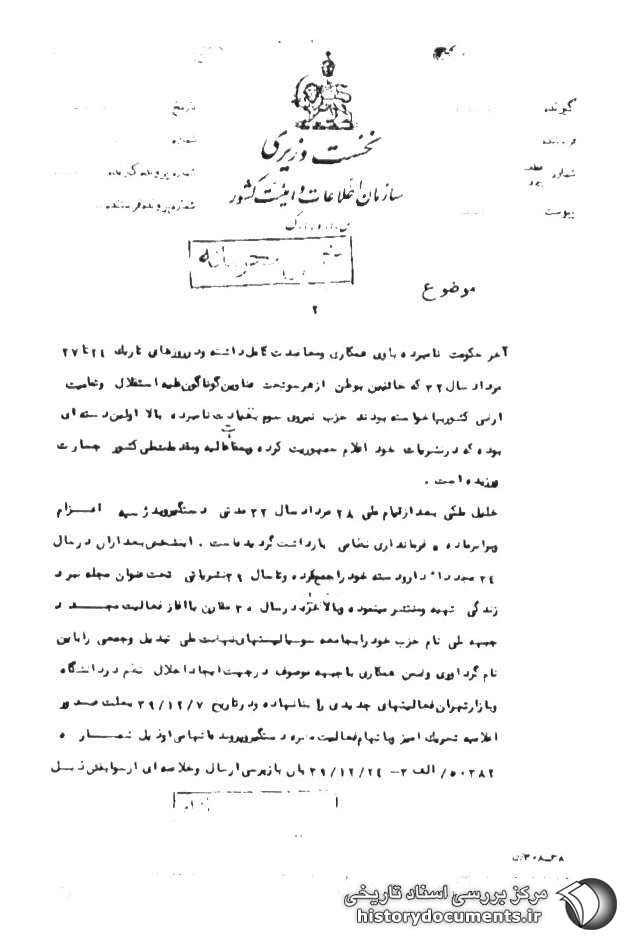 گیرنده
تاریخ
فرستنده
شماره
شماره پرونده گیرنده
شماره پرونده فرستنده
پیوست
نخست وزیری
سازمان اطلاعات و امنیت کشور
موضوع
۲
آخر حکومت نامبرده باوی همکاری ومعاضدت کامل داشته ودرروزهای تاریک ۲٤ تا ۲۷
مرداد سال ۳۲ که خائنین بوطن ازهرسوتحت عناوین گوناگون علیه استقلال وتمامیت
ارضی کشوربپاخواسته بودند حزب نیروی سوم بقیادت نامبرده بالا اولین دسته ای
بوده که درنشریات خود اعلام جمهوریت کرده و بمقام سلطنتی کشور جسارت
ورزیده است .
خلیل ملکی بعدازقیام ملی ۲۸ مرداد سال ۳۲ مدتی دستگیروبدژ اعزام
وبرابرماده ٥ فرمانداری نظامی بازداشت گردیده است . این شخص بعدازآن درسال
۳٤ مجددا" دارودسته خودراجمع کرده وتا سال ۳۹ نشریاتی تحت عنوان مجله نبرد
زندگی تهیه ومنتشر مینموده وبالاخره درسال ۳۹ مقارن باآغاز فعالیت مجدد
جبهه ملی نام حزب خودرابجامعه سوسیالیستهای نهضت ملی تبدیل وجمعی رابااین
نام گردآوری وضمن همکاری باجبهه موصوف درجهت ایجاداخلال نظم دردانشگاه
وبازارتهران فعالیتهای جدیدی را بنانهاده ودرتاریخ ۳۹/۱۲/۷ بعلت صدور
اعلامیه تحریک آمیز وباتهام فعالیت مضره دستگیروپرونده اتهامی اوذیل شماره
٥۰۳۸۲/ الف ۳- ۳۹/۱۲/۲٤ بآن بازپرسی ارسال وخلاصه ای ازسوابقش ذیل
۳۰۸-۳۸
مرکز بررسی اسناد تاریخی
historydocuments.ir